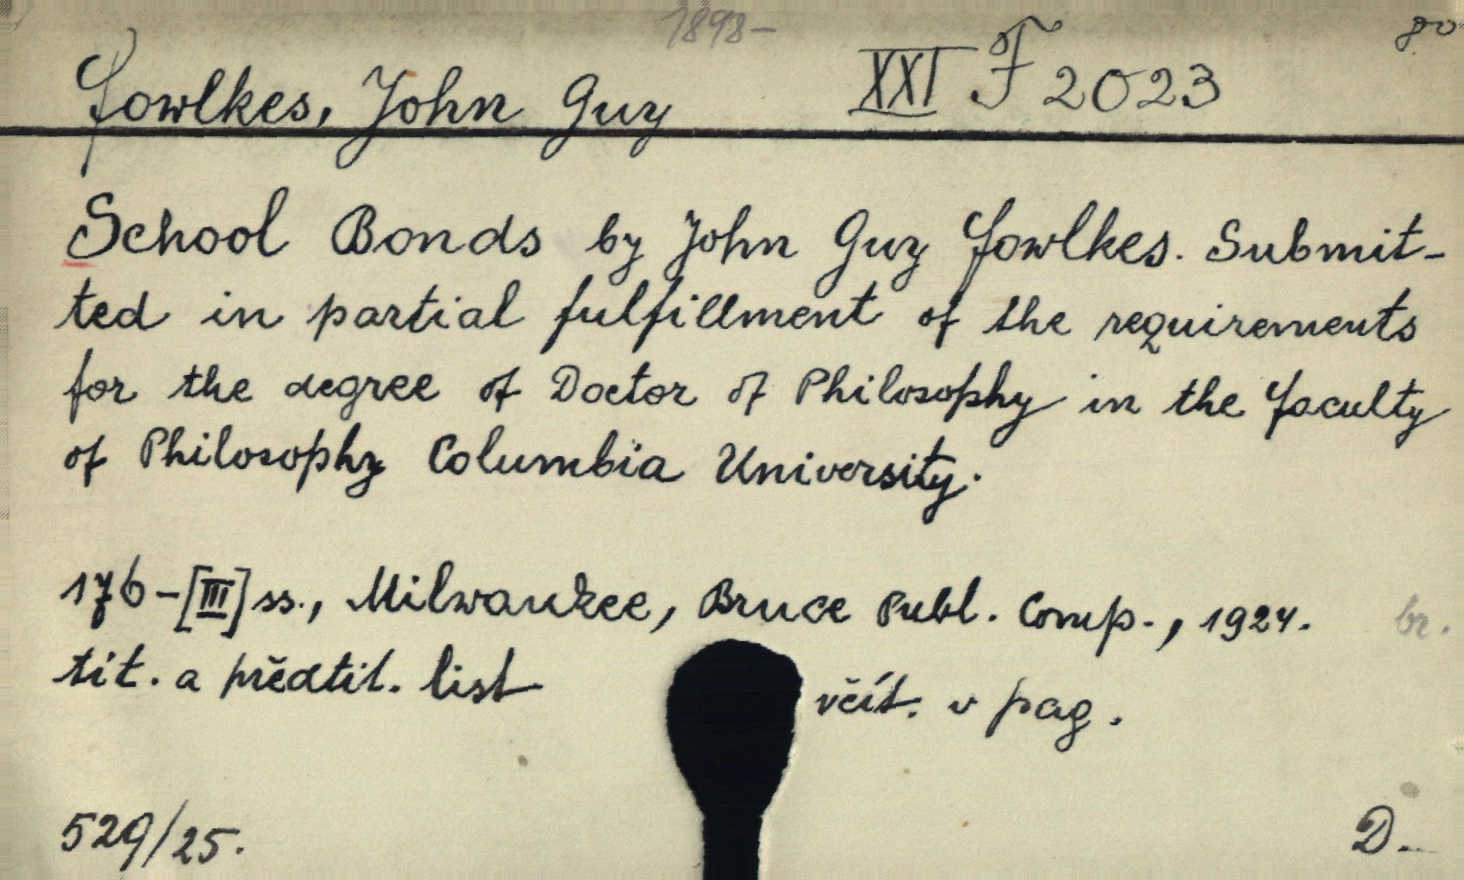 1898-
8°
Fowlkes, John Guy XXI F 2023
School Bonds by John Guy Fowlkes. Submit-
ted in partial fulfillment of the requirements
for the degree of Doctor of Philosophy in the faculty
of Philosophy Columbia University.
176-[III] ss., Milwaukee, Bruce Publ. Comp., 1924. br.
tit. a předtit. list včít. v pag.
529/25. D.